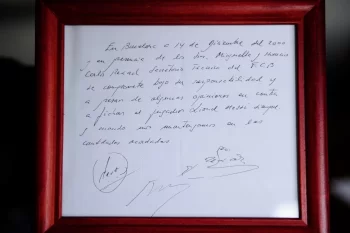 En Barcelona a 14 de Diciembre del 2000
y en presencia de los Srs. Minguella y Horacio
Carles Rexach Secretario Técnico del F.C.B
se compromete bajo su responsabilidad y
a pesar de algunas opiniones en contra
a fichar al jugador Lionel Messi siempre
y cuando nos mantengamos en las
cantidades acordadas